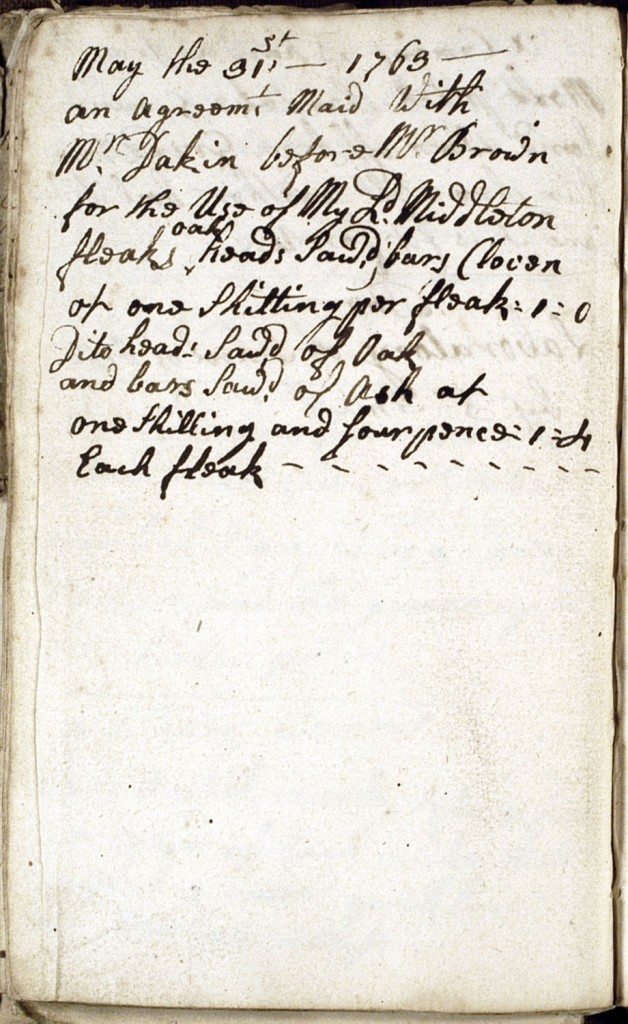 May the 31st — 1763 —
an Agreemt Maid With
Mr Dakin before Mr Brown
for the Use of My Ld Middleton
fleaks oak heads Sawd, bars Cloven
at one Shilling per fleak = 1 = 0
Dito heads Sawd of Oak
and bars Sawd of Ash at
one Shilling and four pence = 1 = 4
Each fleak - - - - - - - - - -